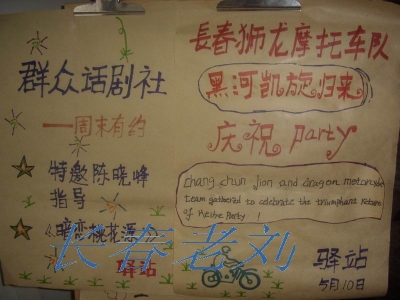 群众话剧社
——周末有约
特邀陈晓峰
指导
《暗恋桃花源》
驿站
長春狮龙摩托车队
黑河凯旋归来
庆祝 party
Chang chun lion and dragon motorcycle
team gathered to celebrate the triumphant return
of Heihe Party !
驿站
5月10日
长春老刘